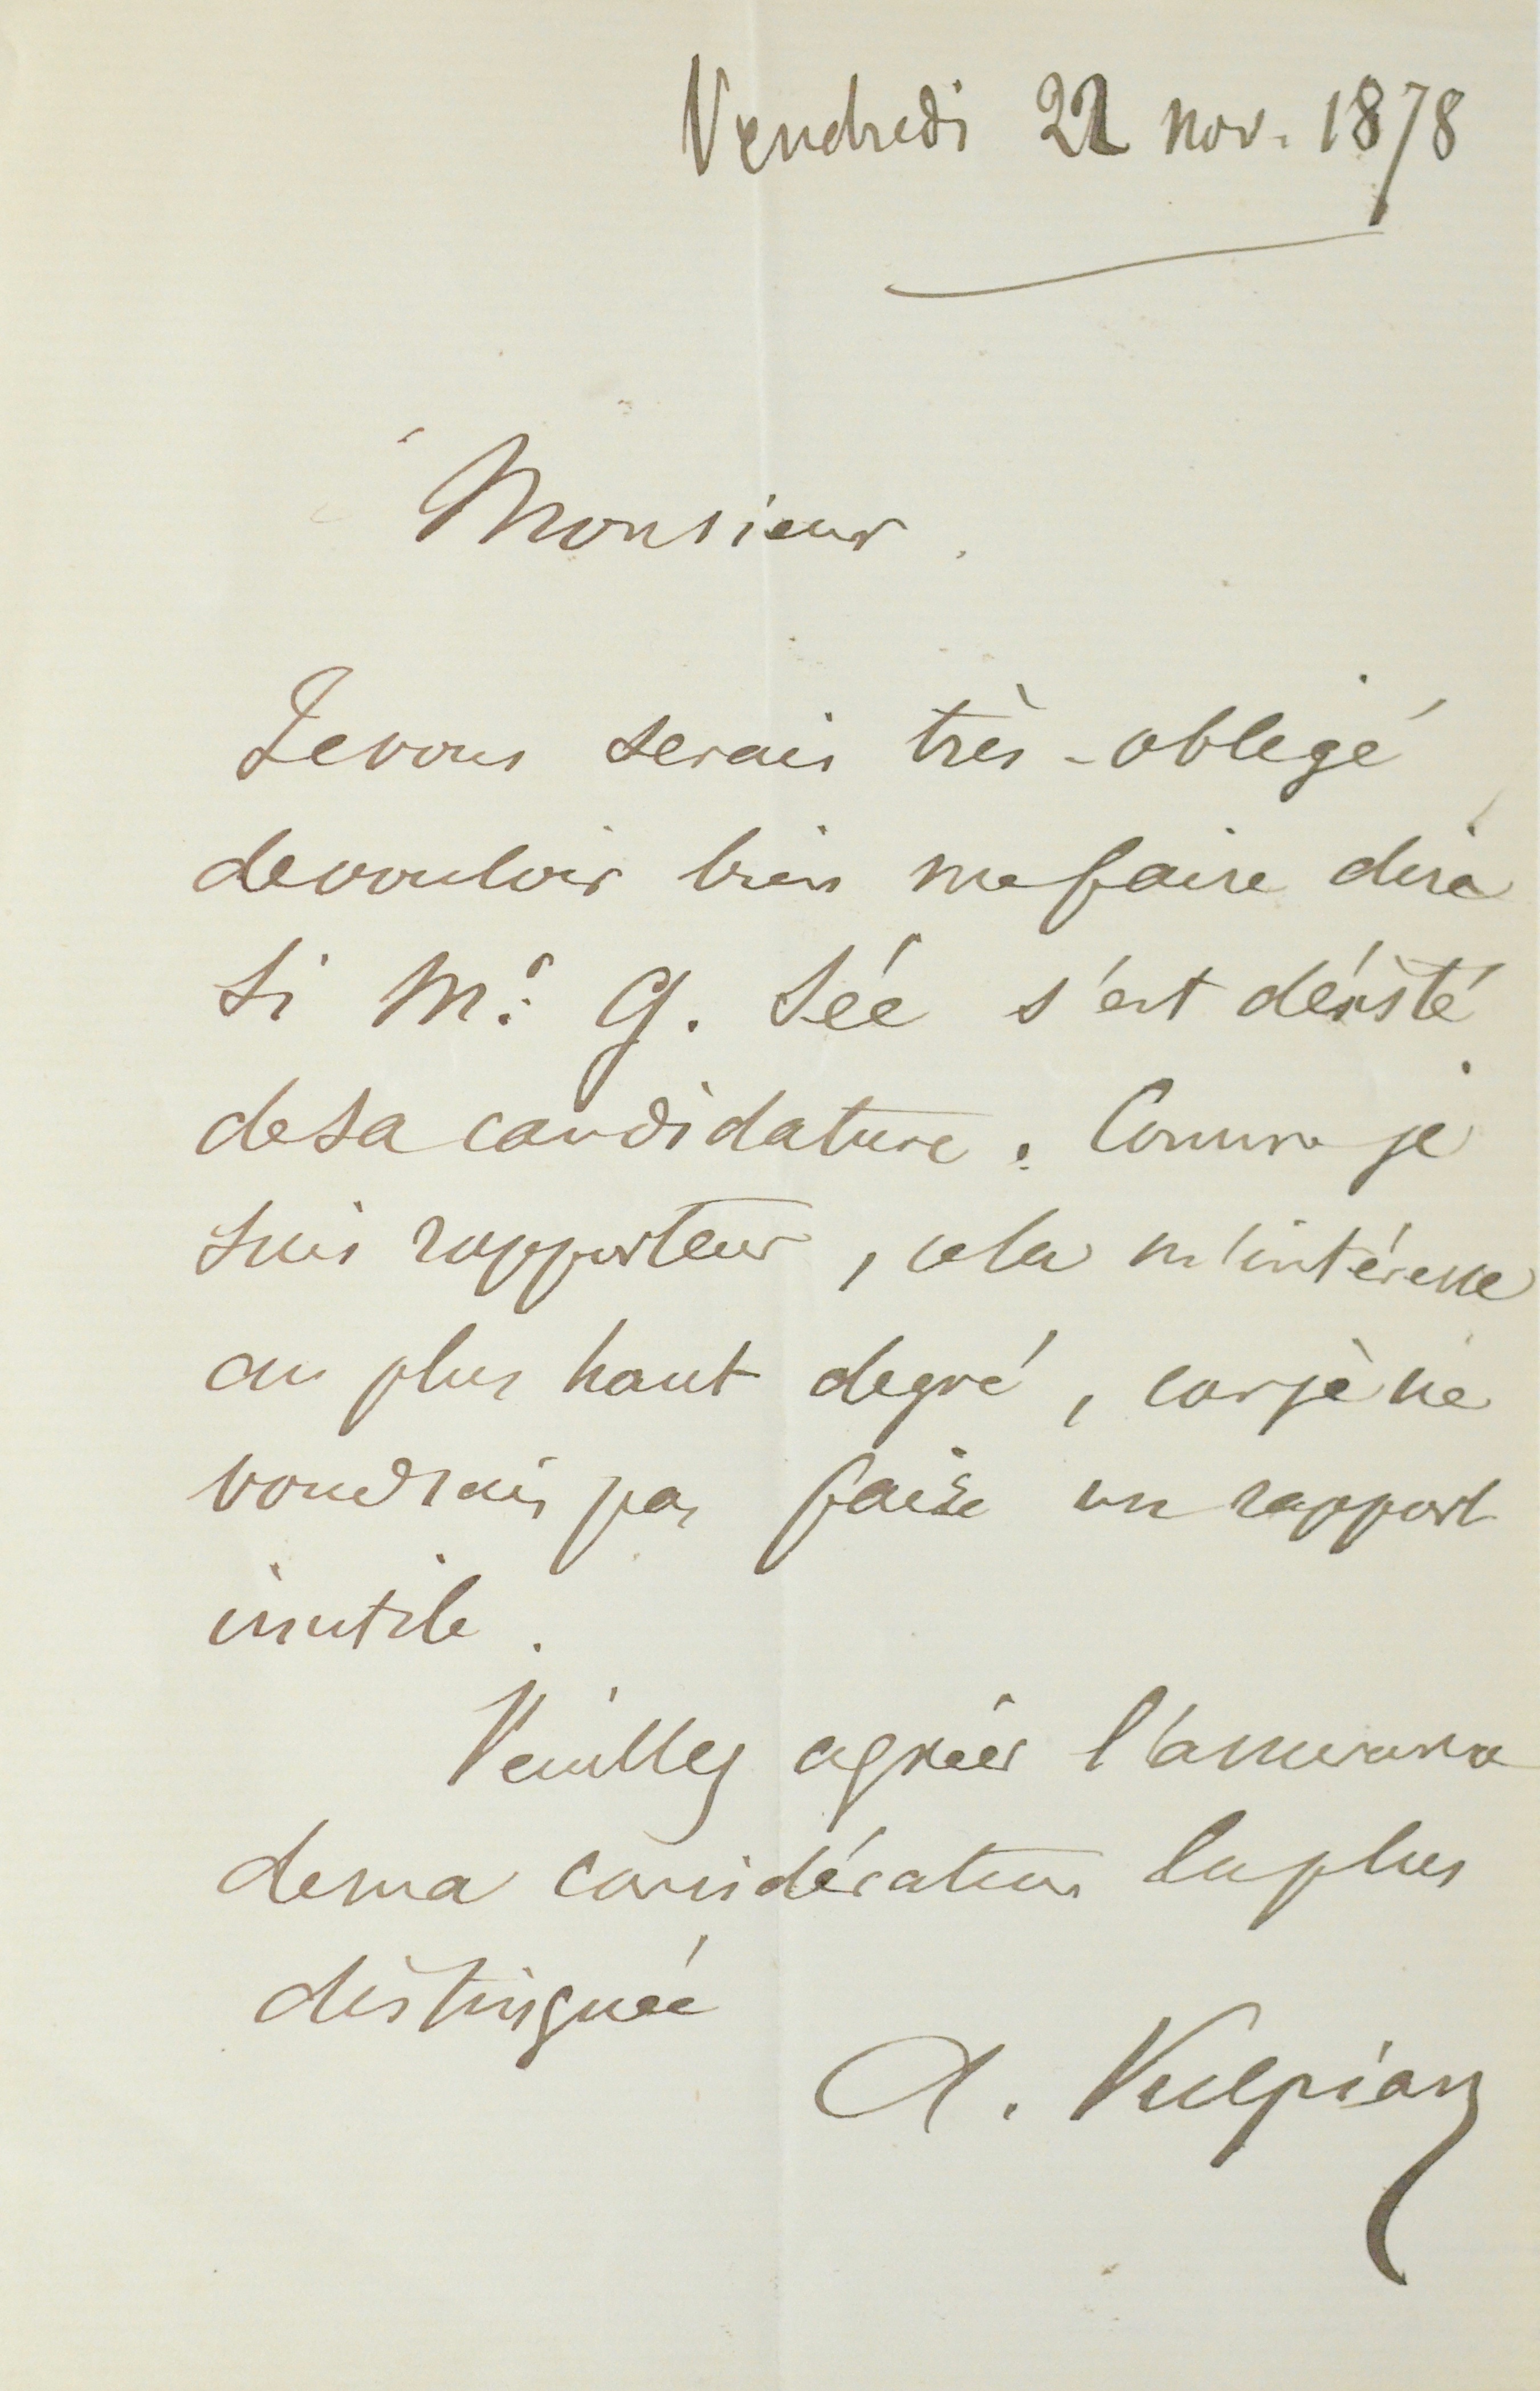 Vendredi 22 nov. 1878
Monsieur,
Je vous serais très-obligé
de vouloir bien me faire dire
si Mr. G. Sée s'est désisté
de sa candidature. Comme je
suis rapporteur, cela m'intéresse
au plus haut degré, car je ne
voudrais pas faire un rapport
inutile.
Veuillez agréer l'assurance
de ma considération la plus
distinguée
A. Vulpian